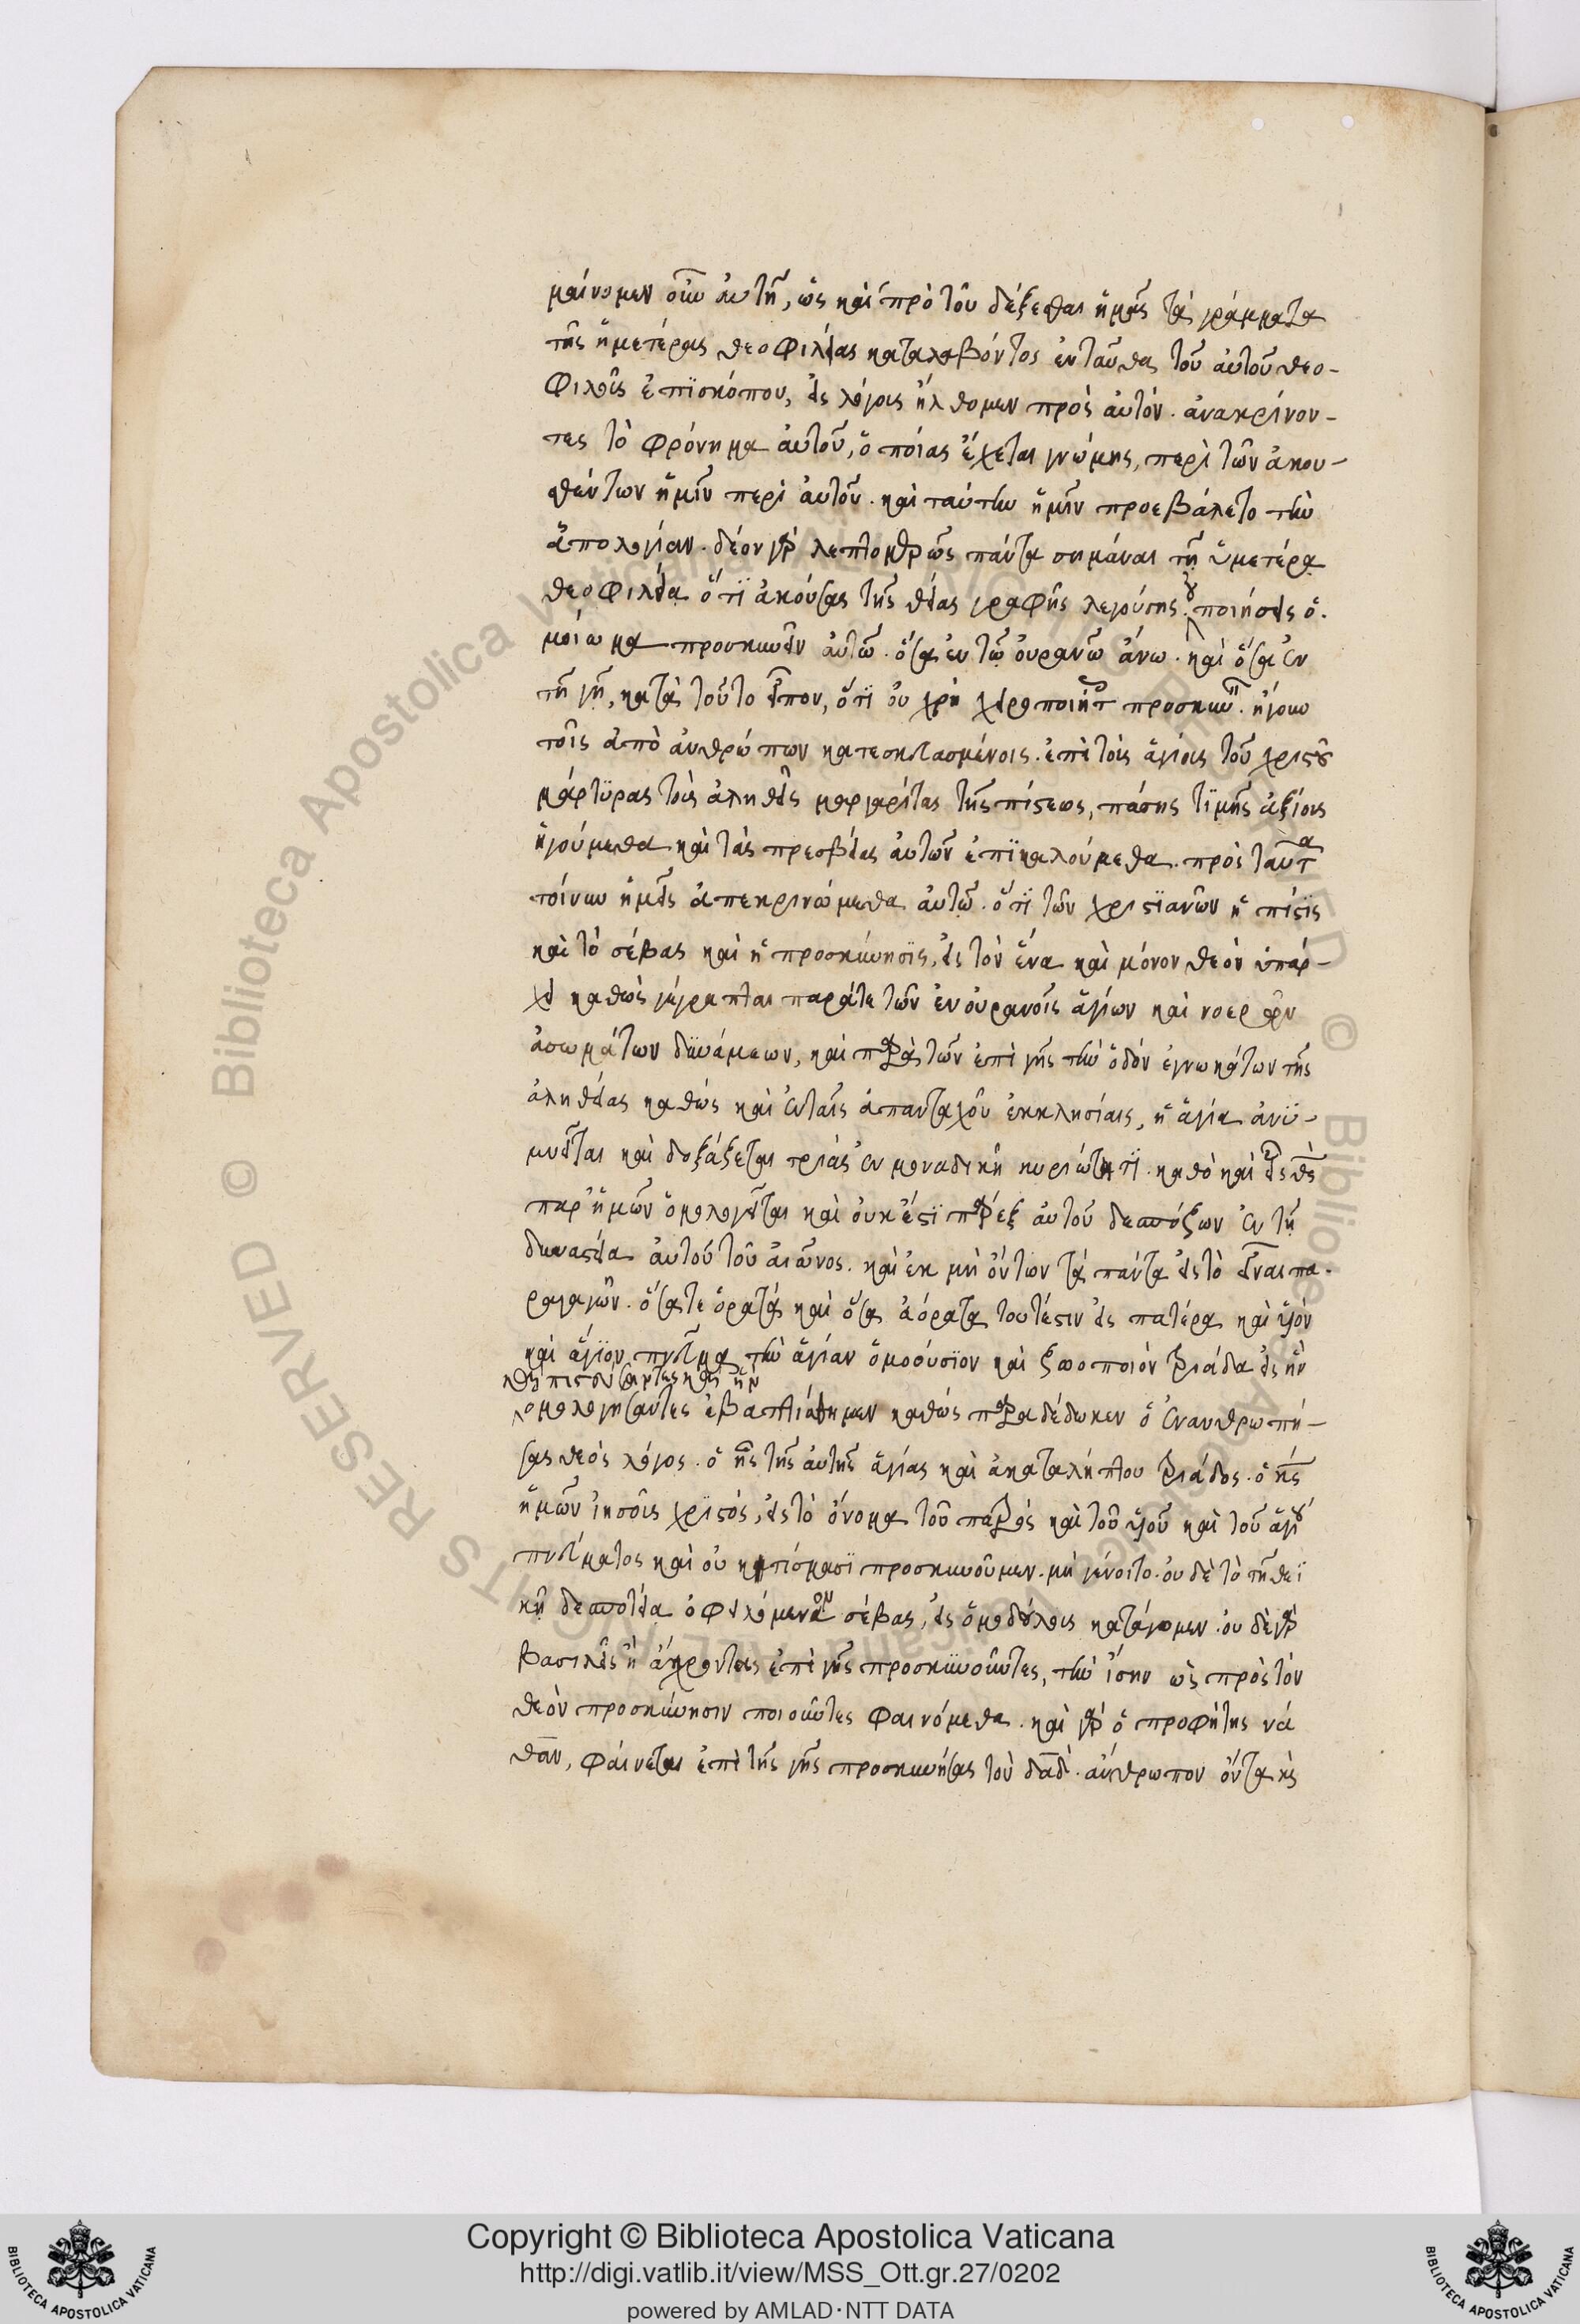 μαίνομεν οὖν αὐτῆ, ὡς καὶ πρὸ τοῦ δέξεσθαι ἡμᾶς τὰ γράμματα
τῆς ἡμετέρας θεοφιλείας καταλαβόντος ἐνταῦθα τοῦ αὐτοῦ θεο-
φιλοῦς ἐπϊσκόπου, εἰς λόγοις ἤλθομεν πρὸς αὐτόν. ἀνακρίνον-
τες τὸ φρόνημα αὐτοῦ, ὁποίας ἔχεται γνώμης, περὶ τῶν ἀκου-
σθέντων ἡμῖν περὶ αὐτοῦ. καὶ ταύτην ἡμῖν προεβάλετο τὴν
ἀπολογίαν. δέον γὰρ λεπτομερῶς πάντα σημάναι τῆ ὑμετέρα
θεοφιλεία ὅτϊ ἀκούσας τῆς θείας γραφῆς λεγούσης οὐ ποιήσεις ὁ.
μοίωμα προσκυνεῖν αὐτῶ. ὅσα ἐν τῶ οὐρανῶ ἄνω. καὶ ὅσα ἐν
τῆ γῆ, κατὰ τοῦτο εἶπον, ὅτϊ οὐ χρὴ χειροποιήτ προσκυν. ἤγουν
τοῖς ἀπὸ ἀνθρώπων κατεσκευασμένοις. ἐπεὶ τοὺς ἁγίους τοῦ χριστοῦ
μάρτϋρας τοὺς ἀληθεῖς μαργαρίτας τῆς πίστεως, πάσης τϊμῆς ἀξίους
ἡγούμεθα καὶ τὰς πρεσβείας αὐτῶν ἐπϊκαλούμεθα. πρὸς ταῦτα
τοίνυν ἡμεῖς ἀπεκρινώμεθα αὐτῶ. ὅτϊ τῶν χριστϊανῶν ἡ πίστϊς
καὶ τὸ σέβας καὶ ἡ προσκύνησϊς, εἰς τὸν ἕνα καὶ μόνον θεὸν ὑπάρ-
χει καθὼς γέγραπται παράτε τῶν ἐν οὐρανοῖς ἁγίων καὶ νοερῶν
ἀσωμάτων δϋνάμεων, καὶ παρὰ τῶν ἐπὶ γῆς τὴν ὁδὸν ἐγνωκότων τῆς
ἀληθείας καθὼς καὶ ἐνταῖς ἁπανταχοῦ ἐκκλησίαις, ἡ ἁγία ἀνϋ-
μνεῖται καὶ δοξάζεται τριὰς ἐν μοναδικῆ κυριώτητϊ. καθὸ καὶ εἷς θς
παρ' ἡμῶν ὁμολογεῖται καὶ οὐκ ἔστϊ παρέξ αὐτοῦ δεσπόζων ἐν τῆ
δυναστεία αὐτοῦ τοῦ αἰῶνος. καὶ ἐκ μὴ ὄντων τὰ πάντα εἰς τὸ εἶναι πα-
ραγαγών. ὅσατε ὁρατὰ καὶ ὅσα ἀόρατα τουτέστιν εἰς πατέρα καὶ υἱὸν
καὶ ἅγϊον πνεῦμα τὴν ἁγίαν ὁμοούσϊον καὶ ζωοποιὸν τριάδα εἰς ἣν
καὶ πιστεύσαντες καθ' ἣν
ὁμολογήσαντες ἐβαπτίσθημεν καθὼς παραδέδωκεν ὁ ἐνανθρωπή-
σας θεὸς λόγος. ὁ εἷς τῆς αὐτῆς ἁγίας καὶ ἀκαταλήπτου τριάδος. ὁ κς
ἡμῶν ἰησοῦς χρϊστός, εἰς τὸ ὄνομα τοῦ πατρὸς καὶ τοῦ υἱοῦ καὶ τοῦ ἁγίου
πνεύματος καὶ οὐ κτίσμασϊ προσκυνοῦμεν. μὴ γένοιτο. οὐδὲ τὸ τῆ θεϊ
κῆ δεσποτεία ὀφειλόμενον σέβας, εἰς ὁμοδούλοις κατάγομεν. οὐ δὲ γὰρ
βασιλεῖς ἢ ἄρχοντας ἐπὶ γῆς προσκϋνοῦντες, τὴν ἴσην ὡς πρὸς τὸν
θεὸν προσκύνησιν ποιοῦντες φαινόμεθα. καὶ γὰρ ὁ προφήτης νά
θαν, φαίνεται ἐπὶ τῆς γῆς προσκυνήσας τὸν δαδ. ἄνθρωπον ὄντα κς